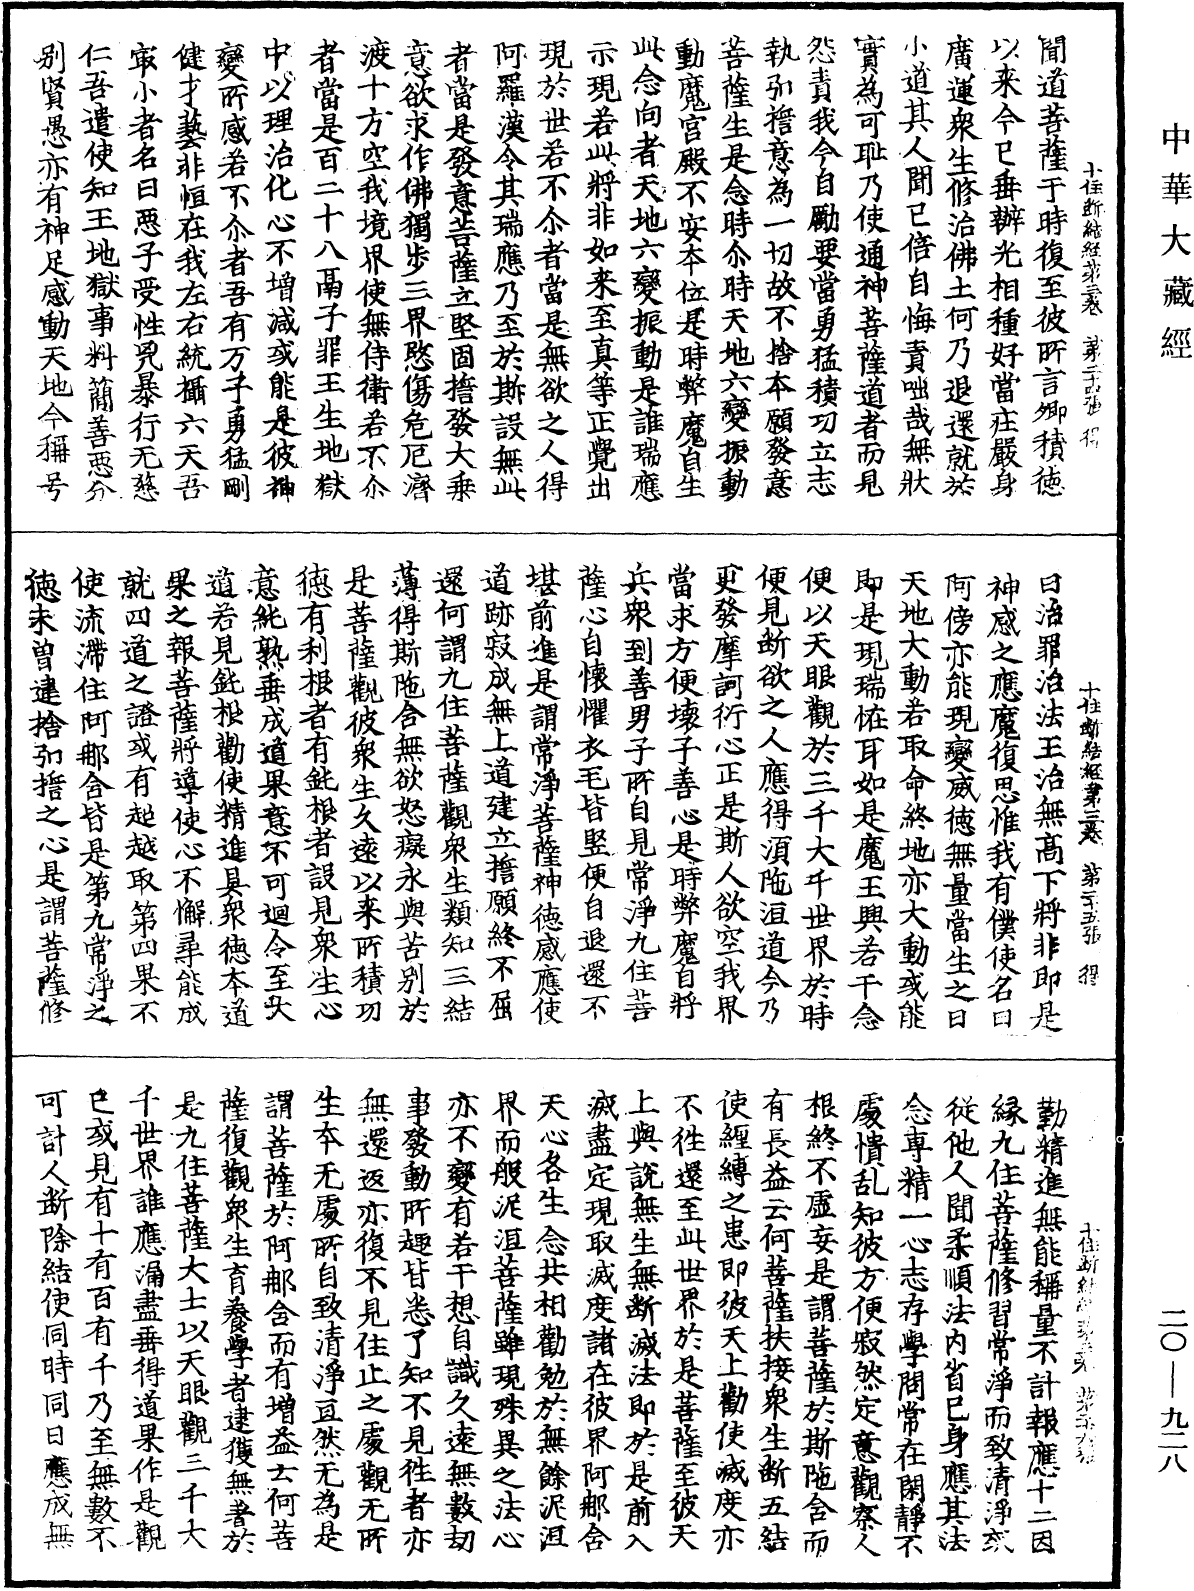 中華大藏經
十住斷結經第三卷 第二十四張 得
聞道菩薩于時復至彼所言卿積德
以来今已垂辦光相種好當庄嚴身
廣運衆生修治佛土何乃退還就於
小道其人聞已倍自悔責咄哉無狀
實為可恥乃使通神菩薩道者而見
怨責我今自勵要當勇猛積功立志
執弘擔意為一切故不捨本願發意
菩薩生是念時尒時天地六變振動
動魔宮殿不安夲位是時弊魔自生
此念向者天地六變振動是誰瑞應
示現若此將非如来至真等正覺出
現於世若不尒者當是無欲之人得
阿羅漢令其瑞應乃至於斯設無此
者當是發意菩薩立堅固擔發大乗
意欲求作佛獨步三界愍傷危厄濟
渡十方空我境界使無侍衛若不尒
者當是百二十八鬲子罪王生地獄
中以理治化心不增減或能是彼神
變所感若不尒者吾有万子勇猛剛
健才藝非恒在我左右統攝六天吾
㝡小者名曰惡子受性㒫暴行无慈
仁吾遣使知王地獄事料蕳善惡分
别賢愚亦有神足感動天地今稱号
十住斷結經第三卷 第二十五張 得
曰治罪治法王治無高下將非即是
神感之應魔復思惟我有僕使名曰
阿傍亦能現變威德無量當生之日
天地大動若取命終地亦大動或能
即是現瑞恠耳如是魔王興若干念
便以天眼觀於三千大千世界於時
便見斷欲之人應得湏陁洹道今乃
更發摩訶衍心正是斯人欲空我界
當求方便壞子善心是時弊魔自將
兵衆到善男子所自見常淨九住菩
薩心自懷懼衣毛皆竪便自退還不
堪前進是謂常淨菩薩神德感應使
道跡寂成無上道建立擔願終不屈
還何謂九住菩薩觀衆生類知三結
薄得斯陁含無欲怒癡永與苦别於
是菩薩觀彼衆生久遠以来所積功
德有利根者有鈍根者設見衆生心
意純熟垂成道果意不可迴令至大
道若見鈍根勸使精進具衆德本道
果之報菩薩將導使心不懈尋能成
就四道之證或有超越取第四果不
使流滯住阿那含皆是第九常淨之
德未曽違捨弘擔之心是謂菩薩修
十住斷結經第三卷 第二十六張
勤精進無能稱量不計報應十二因
緣九住菩薩修習常淨而致清淨或
從他人聞柔順法内省已身應其法
念専精一心志存學問常在閑靜不
處憒乱知彼方便寂然定意觀察人
根終不虚妄是謂菩薩於斯陁含而
有長益云何菩薩扶接衆生斷五結
使纏縛之患即彼天上勸使滅度亦
不徃還至此世界於是菩薩至彼天
上與說無生無斷滅法即於是前入
滅盡定現取滅度諸在彼界阿那含
天心各生念共相勸勉於無餘泥洹
界而般泥洹菩薩雖現殊異之法心
亦不變有若干想自識久遠無數劫
事發動所趣皆悉了知不見徃者亦
無還返亦復不見住止之處觀无所
生夲无處所自致清淨亘然无為是
謂菩薩於阿那含而有增益云何菩
薩復觀衆生育養學者逮獲無著於
是九住菩薩大士以天眼觀三千大
千世界誰應漏盡垂得道果作是觀
已或見有十有百有千乃至無數不
可計人斷除結使同時同日應成無
二〇—九二八